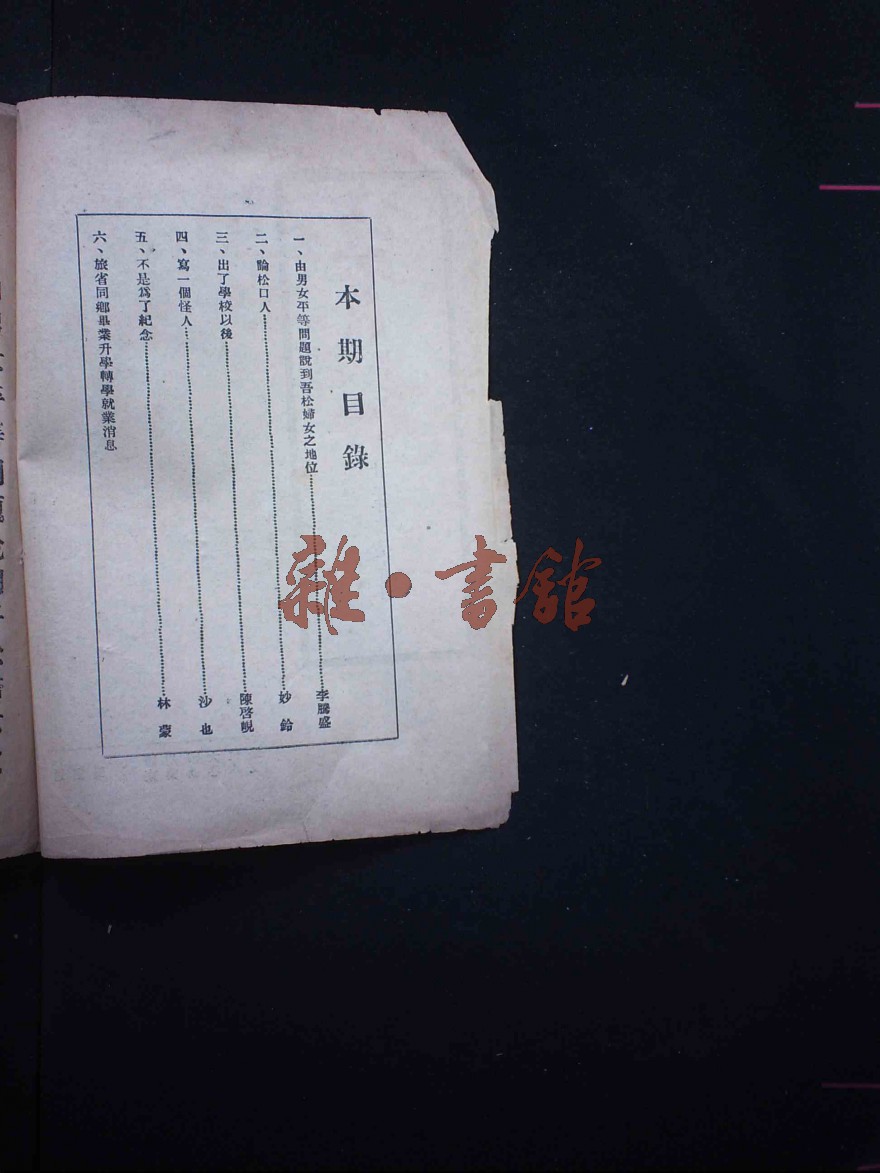 本期目錄
一、由男女平等問題說到吾松婦女之地位……李騰盛
二、論松口人……妙鈴
三、出了學校以後……陳啓覩
四、寫一個怪人……沙也
五、不是爲了紀念……林蒙
六、旅省同鄉畢業升學轉學就業消息
雜·書館